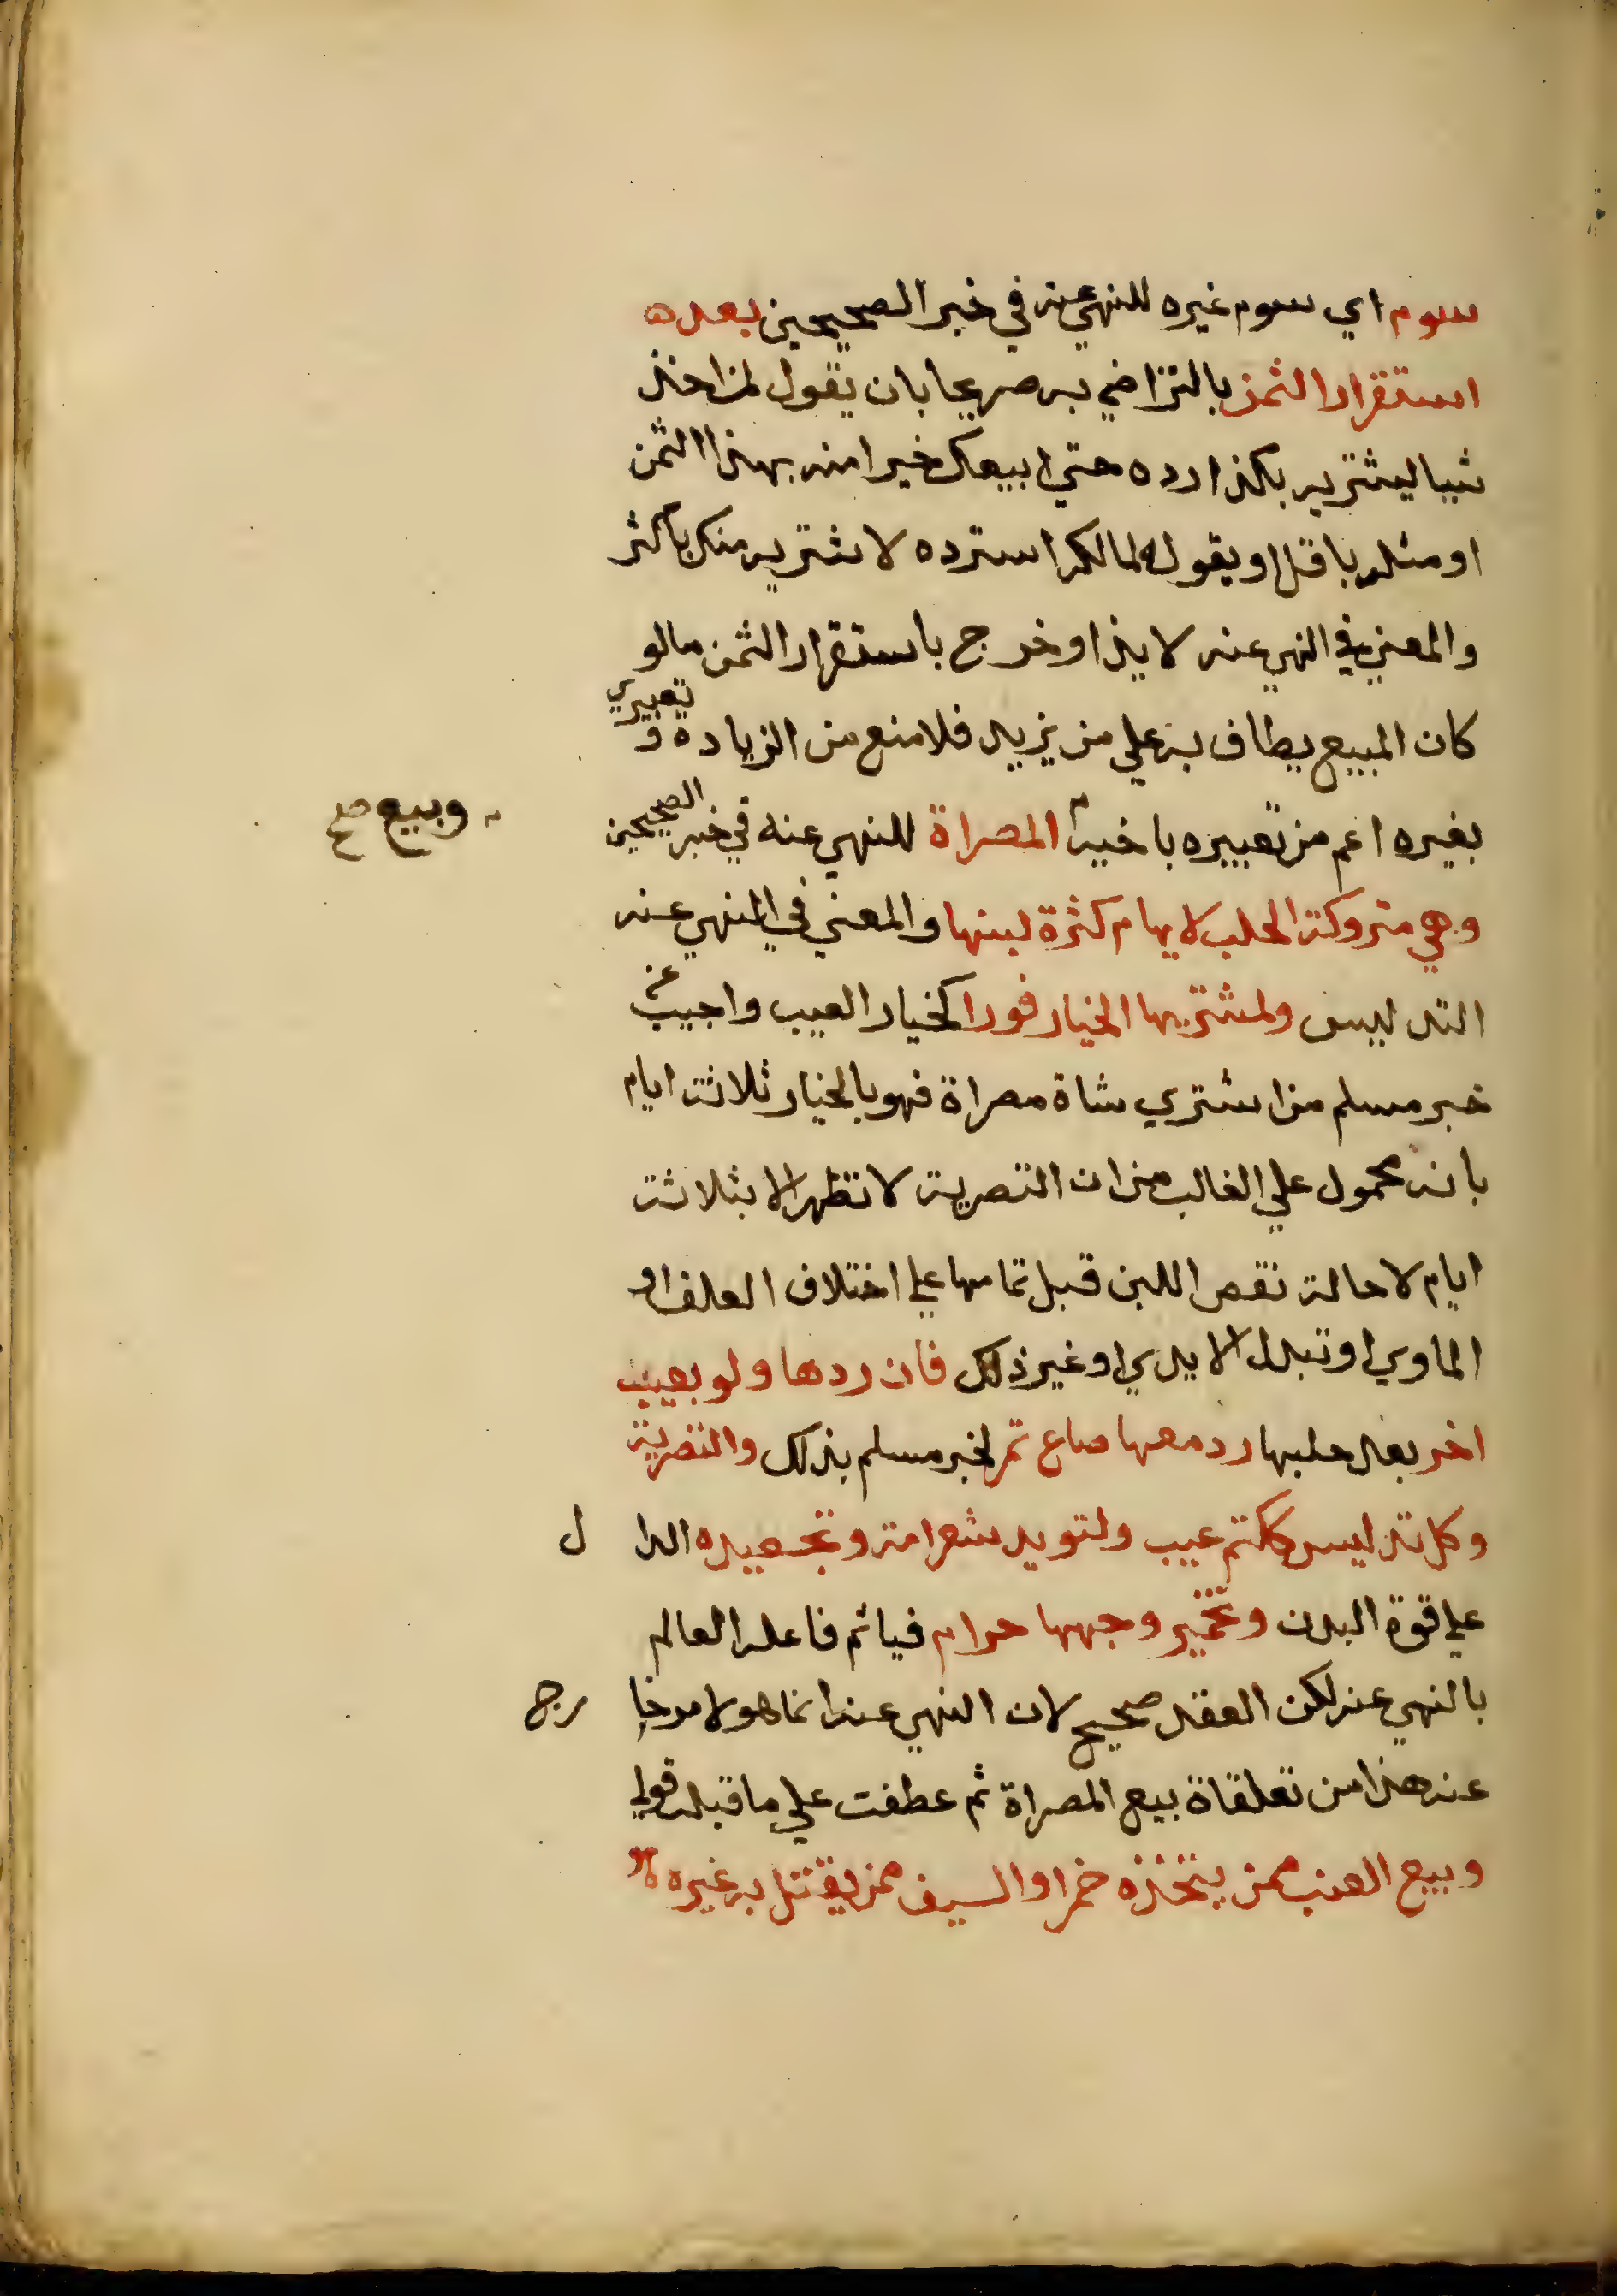 سوم اي سوم غيره للنهي عنه في خبر الصحيحين بعده
استقرار الثمن بالتراضي به صريحا بان يقول لمن اخذ
شيا ليشتريه بكذا رده حتي ابيعك خيرا منه بهذا الثمن
او مثله باقل او يقول لمالكه استرده لاشتريه منك باكثر
والمعني في النهي عنه لايذا وخرج باستقرار الثمن مالو
كان المبيع يطاف به علي من يزيد فلا منع من الزيادة و تعبيري
بغيره اعم من تعبيره باخيه المصراة للنهي عنه في خبر الصحيحين
وبيع صح
وهي متروكة الحلب لايهام كثرة لبنها والمعني في النهي عنه
التدليس ولمشتريها الخيار فورا كخيار العيب واجيب عن
خبر مسلم من اشتري شاة مصراة فهو بالخيار ثلاثة ايام
بانه محمول علي الغالب من ان التصرية لا تظهر الا بثلاثة
ايام لاحالة نقص اللبن قبل تمامها علي اختلاف العلف او
الماوي او تبدل الايدي او غير ذلك فان ردها ولو بعيب
اخر بعد حلبها رد معها صاع تمر لخبر مسلم بذلك والتصرية
وكل تدليس ككتم عيب ولتويد شعر امة وتجعيده الدا ل
علي قوة البدن وتخمير وجهها حرام فياثم فاعله العالم
بالنهي عنه لكن العقد صحيح لان النهي عنه انما هو لامر خا رج
عنه هذا من تعلقاة بيع المصراة ثم عطفت علي ما قبله قولي
وبيع العنب ممن يتخذه خمرا والسيف ممن يقتتل به غيره